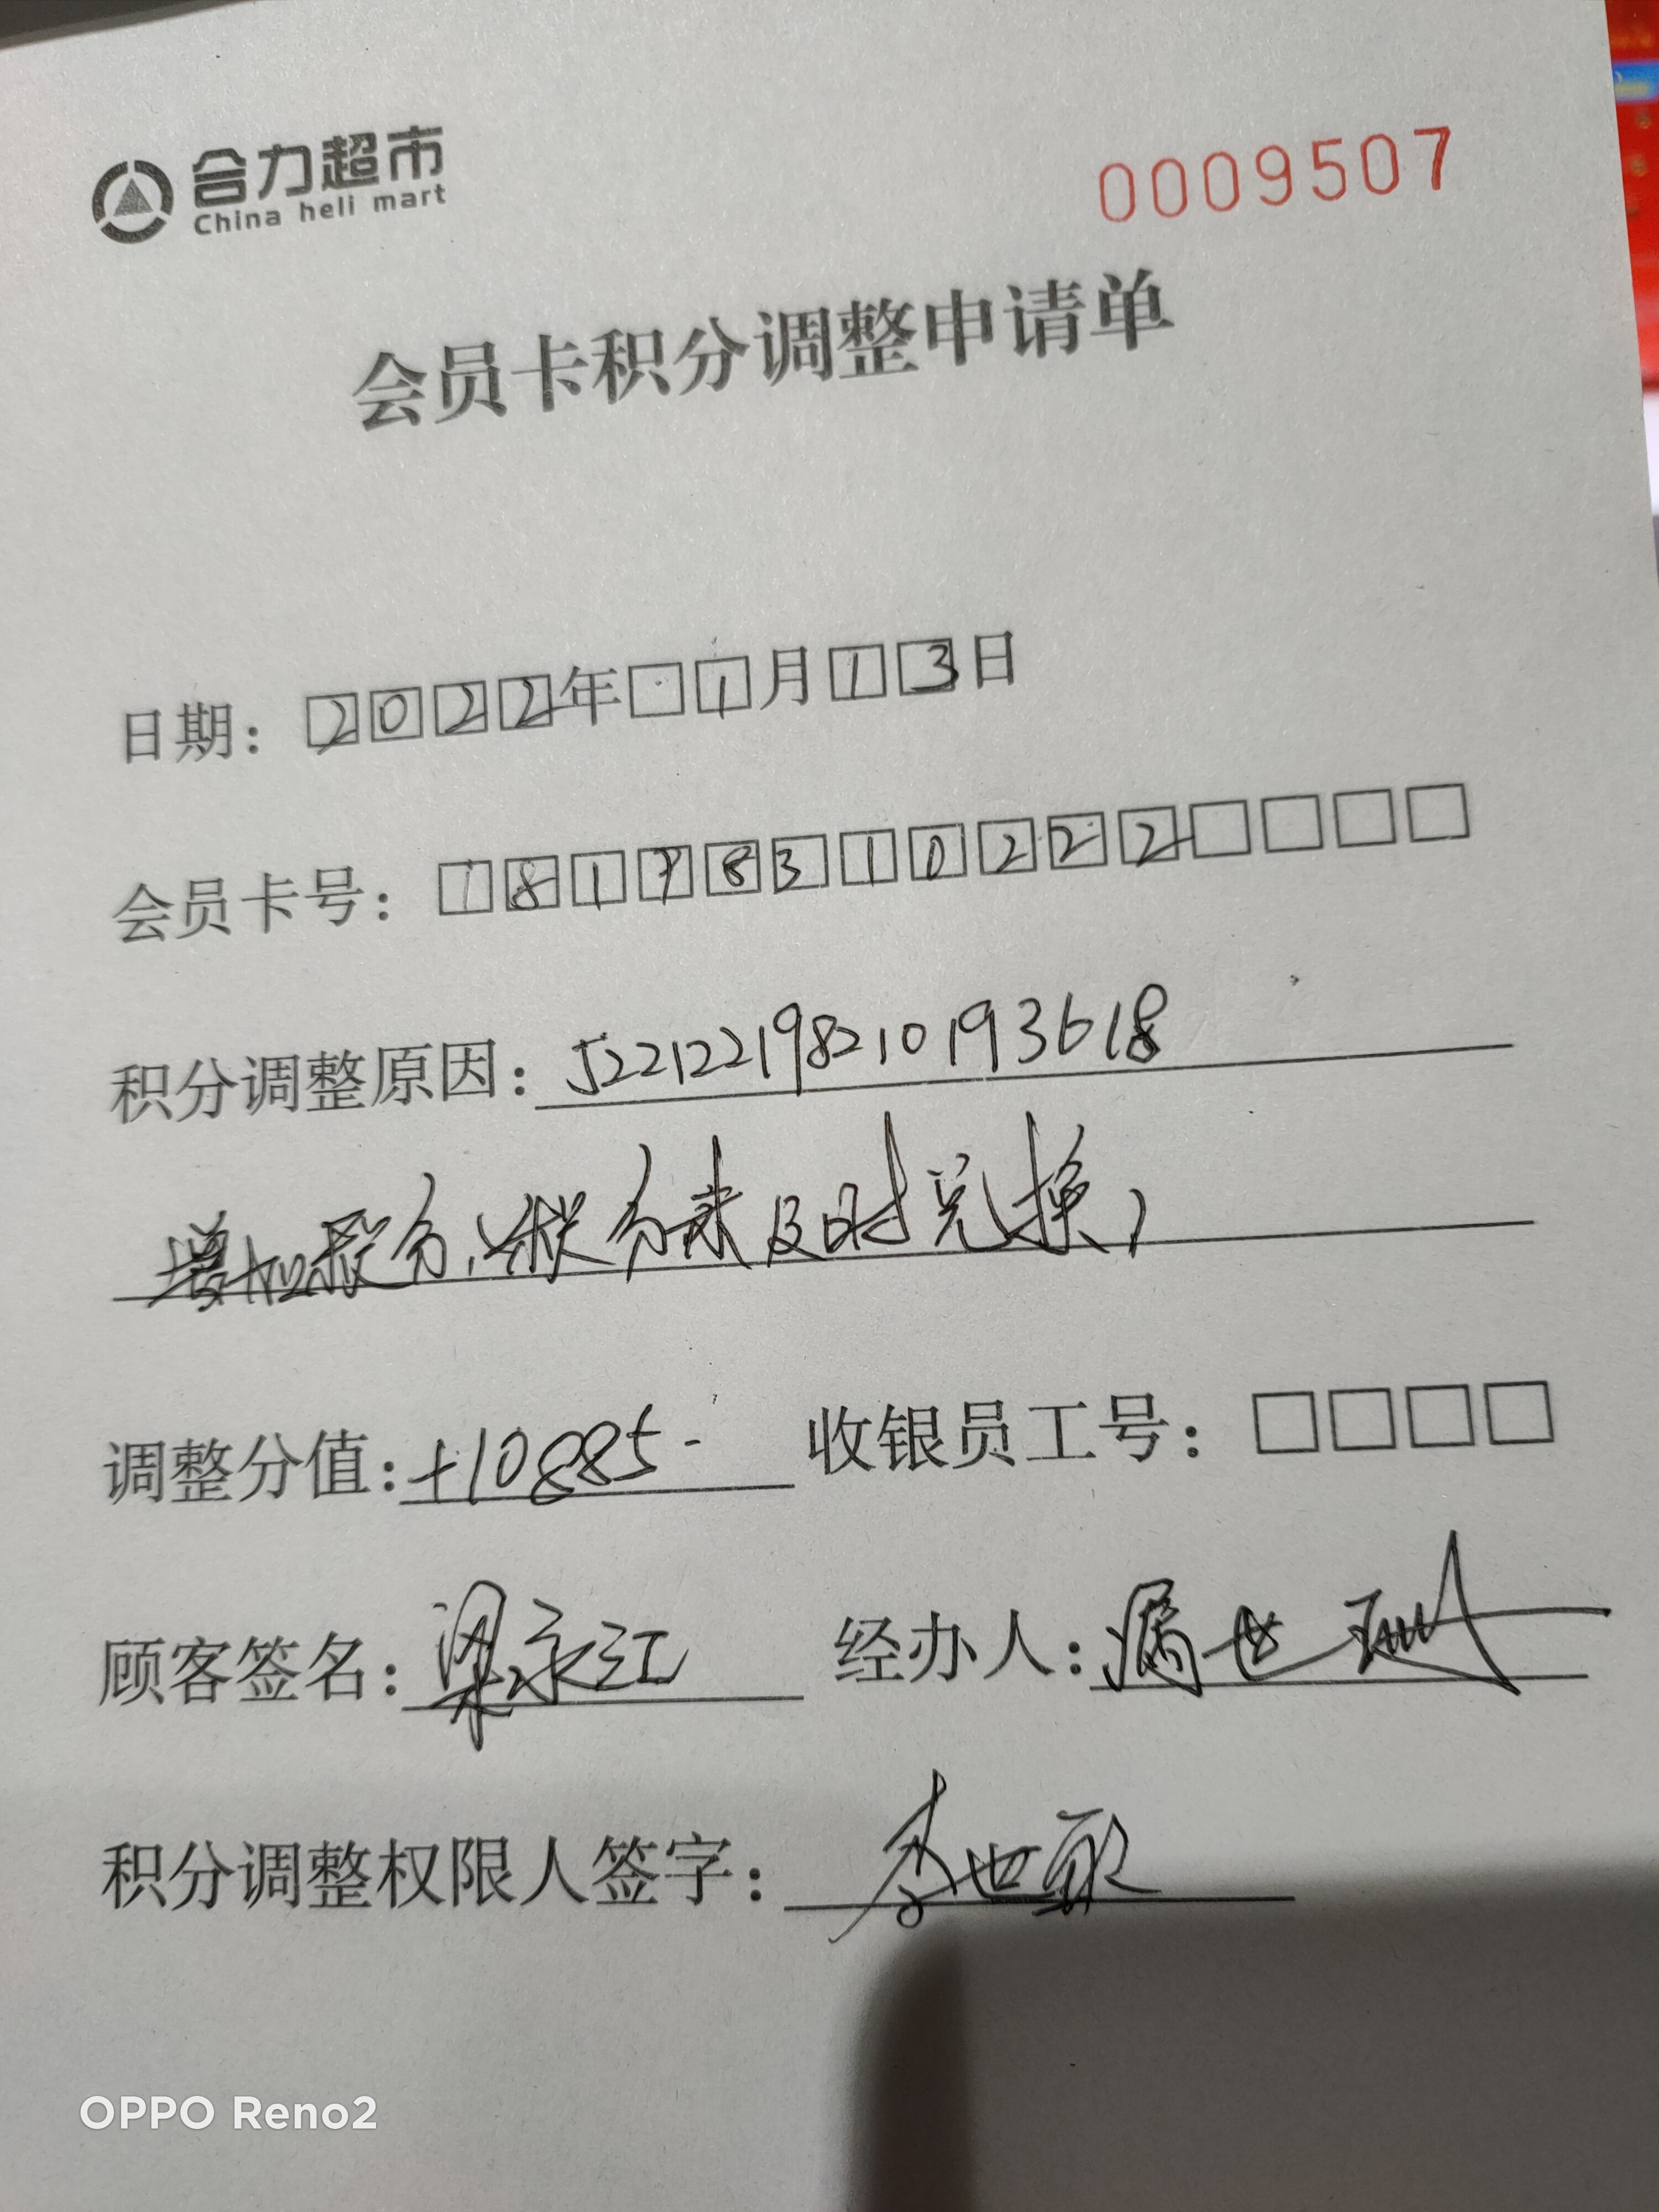 合力超市
China heli mart
0009507
会员卡积分调整申请单
日期：2022年 1月13日
会员卡号：18178310222
积分调整原因：522122198210193618
增加积分，积分未及时兑换，
调整分值：+10885- 收银员工号：
顾客签名：梁永江 经办人：
积分调整权限人签字：李世敏
OPPO Reno2